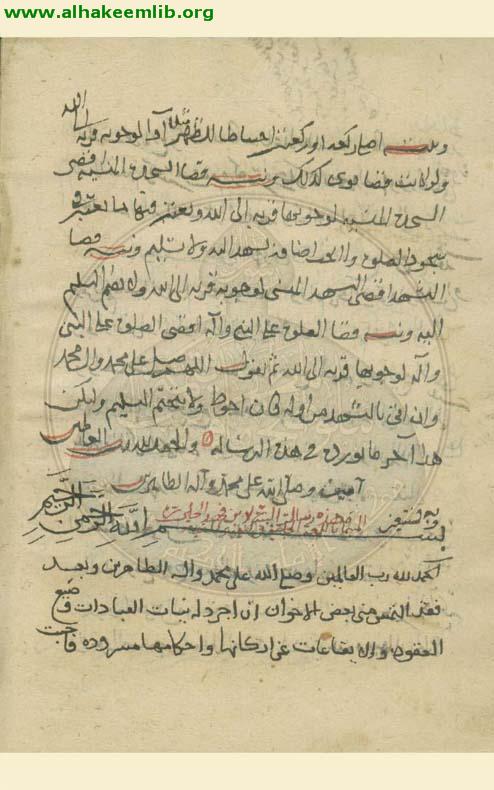 www.alhakeemlib.org
الله
ونيته اصلي ركعة او ركعتين احتياطا للظهر مثلا اداء لوجوبه قربة
ولو كانت قضا نوى كذلك ونيته قضا السجدة المنسية اقضى
السجدة المنسية لوجوبها قربة الى الله ويعتبر فيها ما يعتبر في
سجود الصلوة
ولا تسليم ونيته قضا
التشهد اقضى التشهد المنسى لوجوبه قربة الى الله ولا يضم التسليم
اليه ونيته قضا الصلوة على النبي وآله اقضى الصلوة على النبي
وآله لوجوبها قربة الى الله ثم يقول اللهم صل على محمد وال محمد
وان اتى بالتشهد من اوله كان احوط ولا يتحتم التسليم وليكن
هذا آخر ما نورده في هذه الرساله والحمد لله رب العالمين
آمين وصلى الله على محمد وآله الطاهرين
وبه نستعين
بسم الله الرحمن الرحيم
الحمد لله رب العالمين وصلى الله على محمد واله الطاهرين وبعد
فقد التمس منى بعض الاخوان ان اجرد له نيات العبادات وصيغ
العقود والايقاعات عن اركانها واحكامها مسرودة فاجبت